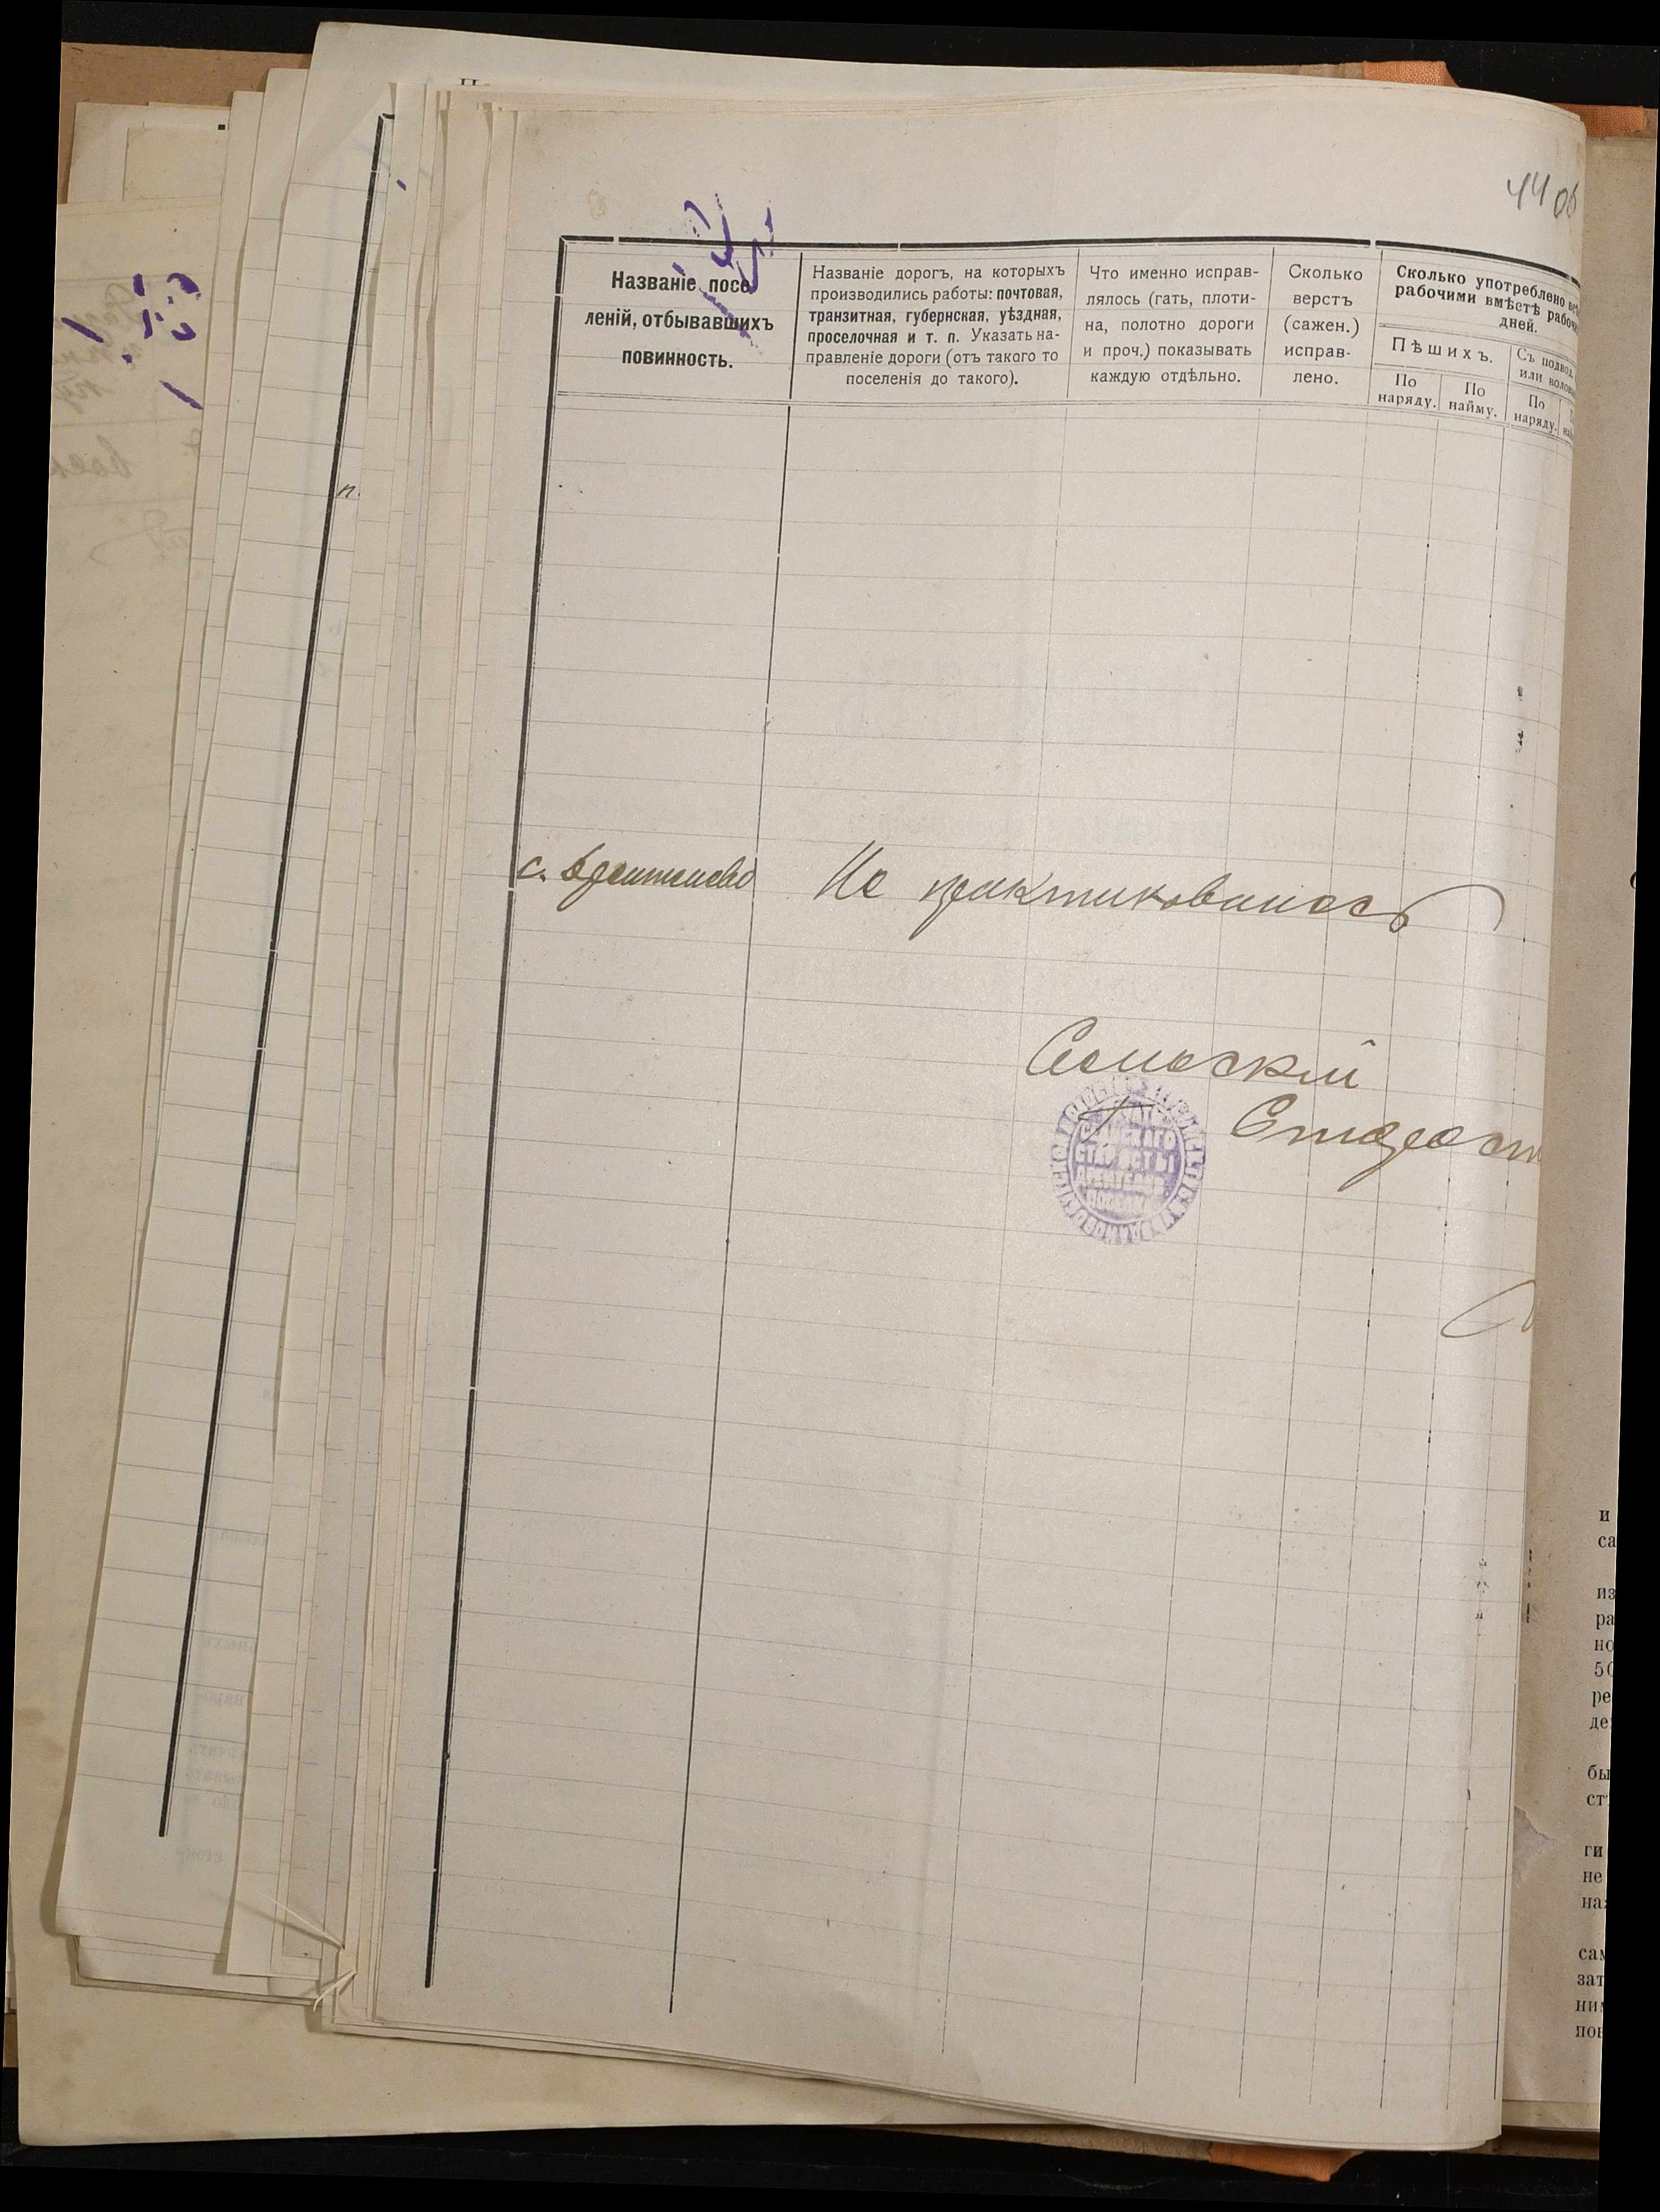 44 об
Названіе посе-
леній, отбывавшихъ
повинность.
Названіе дорогъ, на которыхъ
производились работы: почтовая,
транзитная, губернская, уѣздная,
проселочная и т. п. Указать на-
правленіе дороги (отъ такого то
поселенія до такого).
Что именно исправ-
лялось (гать, плоти-
на, полотно дороги
и проч.) показывать
каждую отдѣльно.
Сколько
верстъ
(сажен.)
исправ-
лено.
Сколько употреблено
рабочими вмѣстѣ
дней.
Пѣшихъ.
Съ подвод.
или
По
наряду.
По
найму.
По
наряду.
с.
Не практиковалось
Сельскій
Старост
СЕЛЬСКАГО
СТАРОСТЫ
п.
и
са
из
ра
но
50
ре
де
бы
ст
ги
не
на
сам
зат
ни
пов